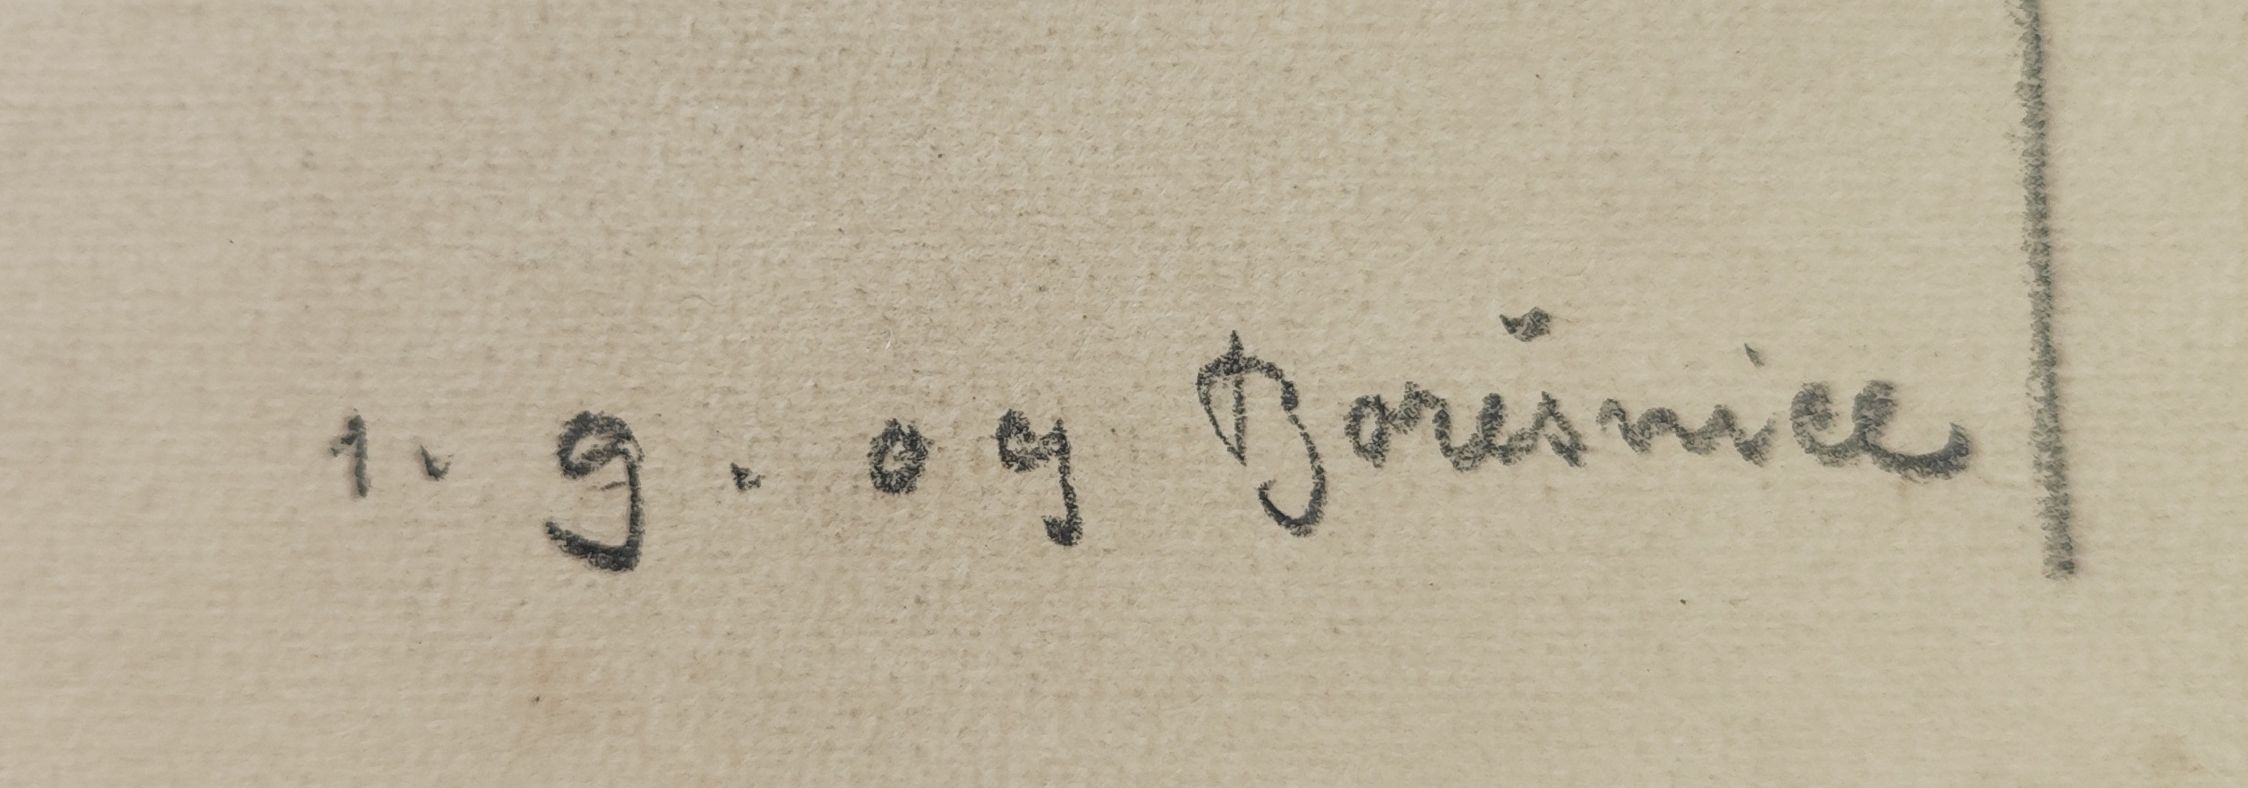 1. 9. 09 Borešnice